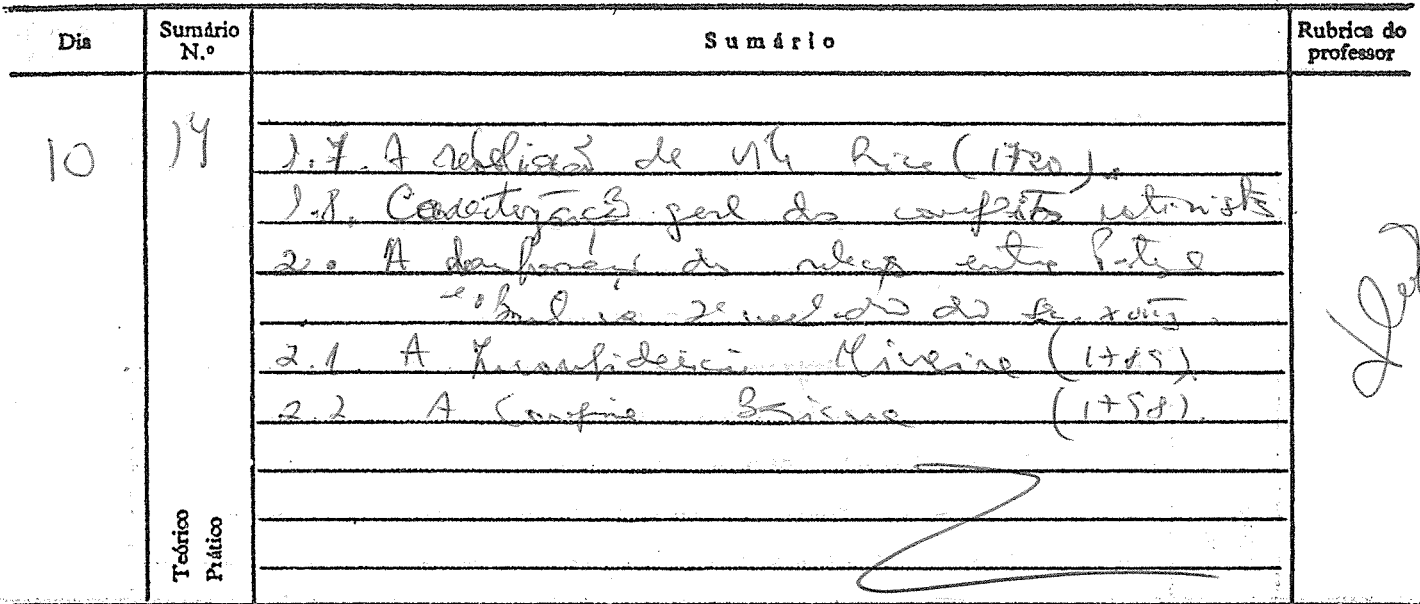 Dia
Sumário N.º
Sumário
Rubrica do professor
10
14
1.7. A rebelião de Vila Rica (1720).
1.8. Caracterização geral do conflito nativista
2. A das relações entre Portugal
e o Brasil na 2ª metade do séc. XVIII.
2.1 A Inconfidência Mineira (1789).
2.2 A Conjura Baiana (1798).
Teórico
Prático